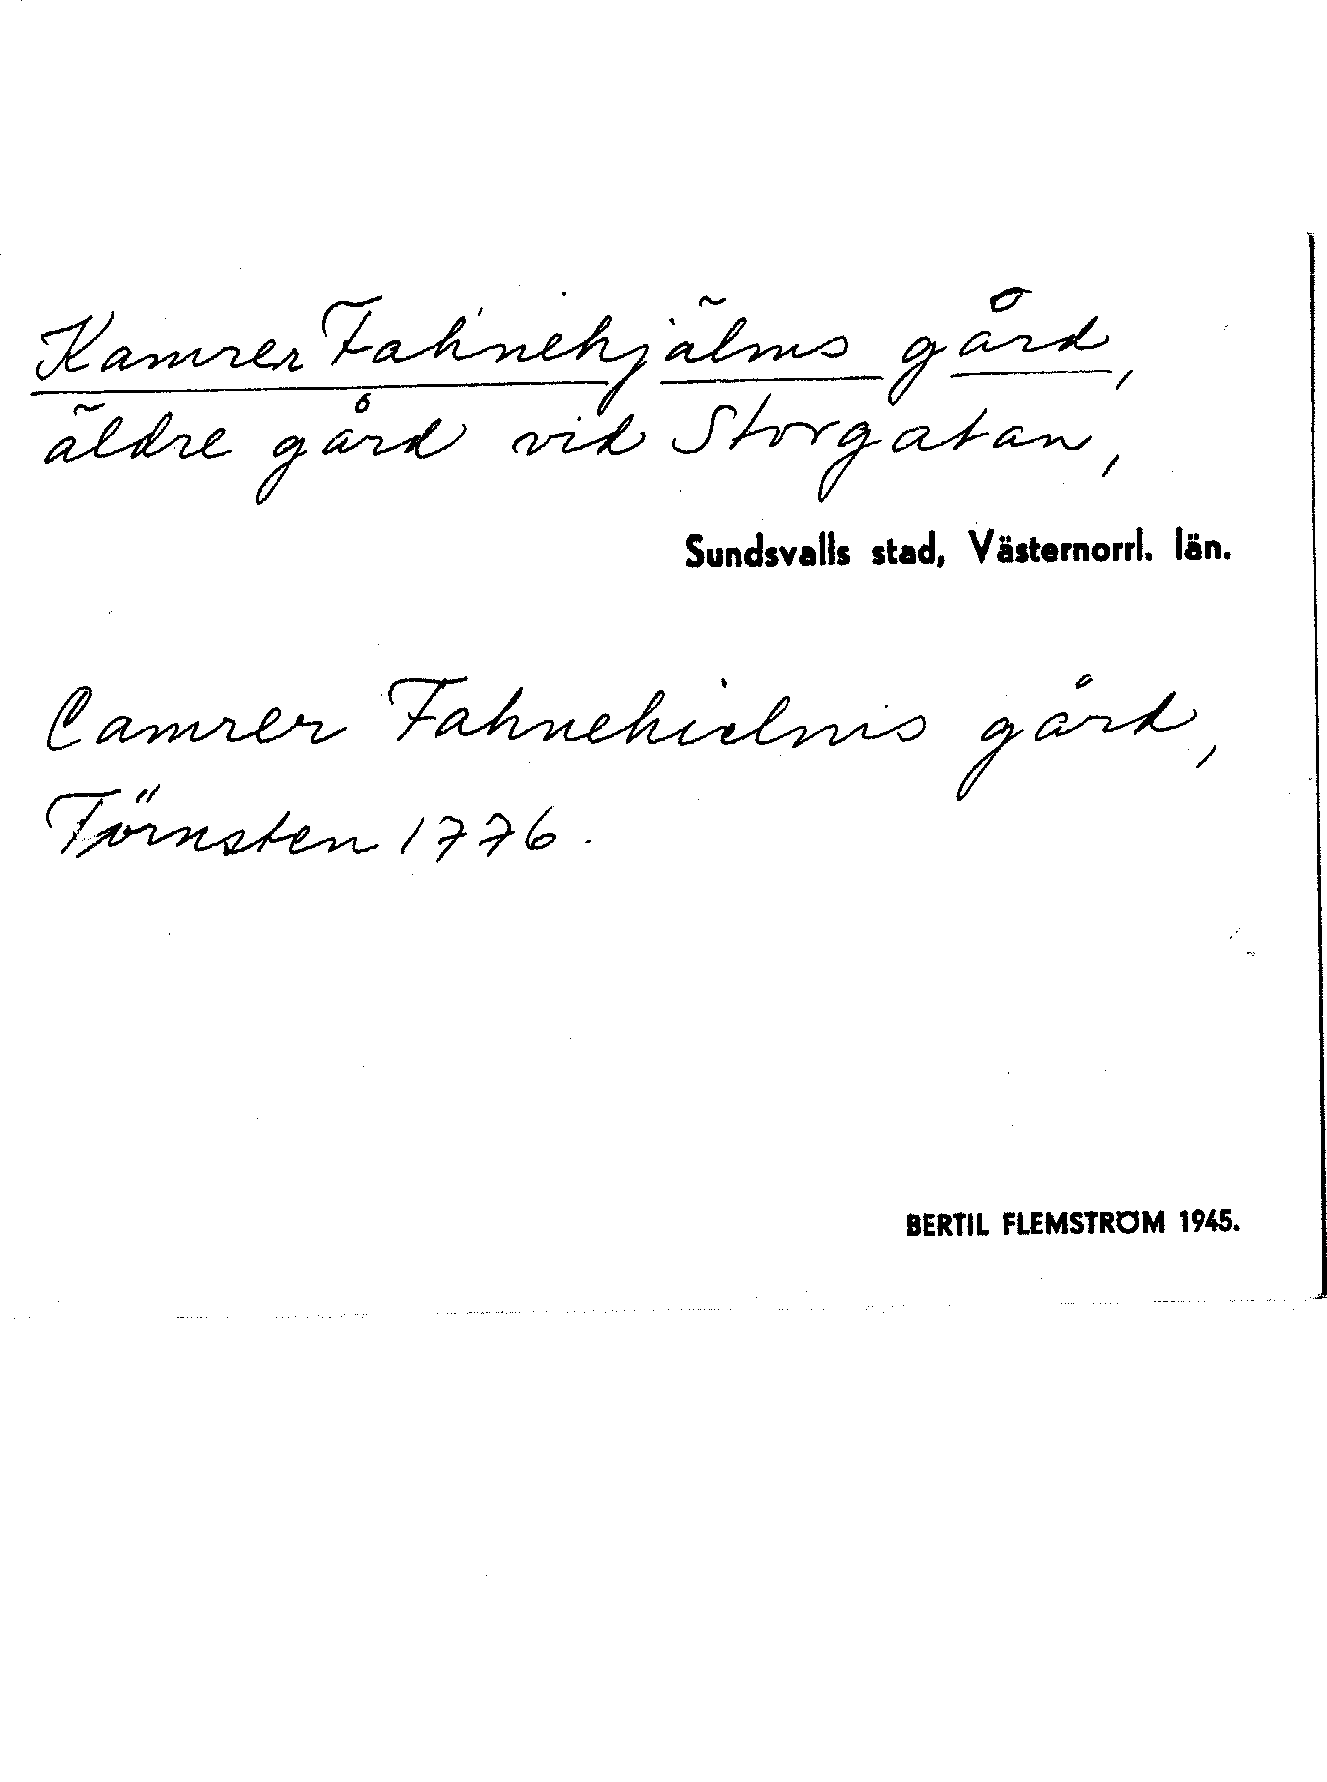 Kamrer Fahnehjälms gård,
äldre gård vid Storgatan,
Sundsvalls stad, Västernorrl. län.
Camrer Fahnehielms gård,
Törnsten 1776.
BERTIL FLEMSTRÖM 1945.